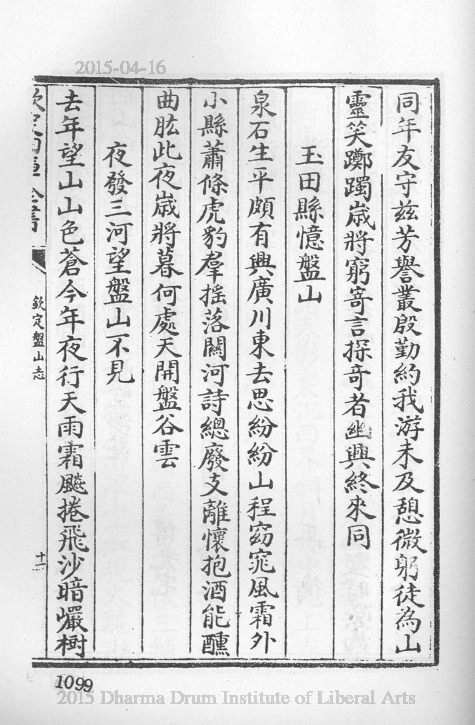 2015-04-16
同年友守兹芳譽叢殷勤約我游未及憩微躬徒為山
靈笑躑躅嵗將窮寄言探奇者幽興終來同
玉田縣憶盤山
泉石生平頗有興廣川東去思紛紛山程窈窕風霜外
小縣蕭條虎豹羣摇落關河詩總廢支離懷抱酒能醺
曲肱此夜嵗將暮何處天開盤谷雲
夜發三河望盤山不見
去年望山山色蒼今年夜行天雨霜飈捲飛沙暗巖樹
欽定四庫全書
欽定盤山志
十二
1099
2015 Dharma Drum Institute of Liberal Arts